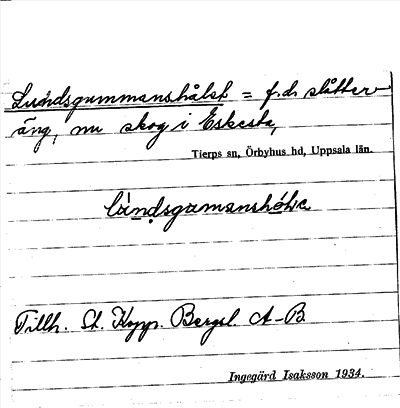 Lundsgummanshålst = f.d. slåtter-
äng, nu skog i Eskesta,
Tierps sn, Örbyhus hd, Uppsala län.
Tillh. St. Kopp. Bergsl. A-B
Ingegärd Isaksson 1934.